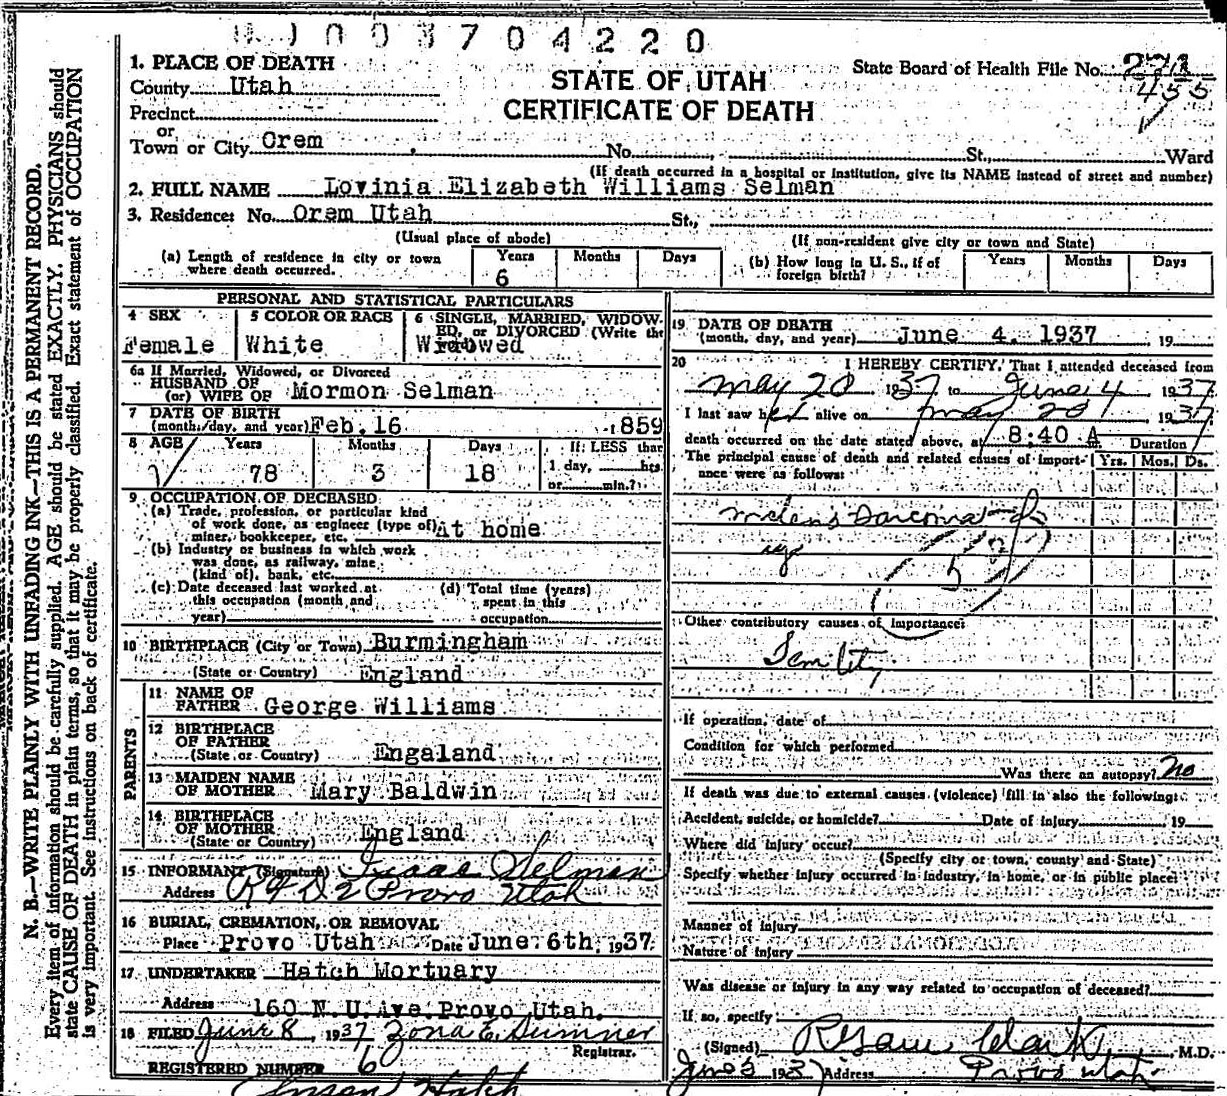 003704220
N. B.—WRITE PLAINLY WITH UNFADING INK—THIS IS A PERMANENT RECORD.
Every item of information should be carefully supplied. AGE should be stated EXACTLY. PHYSICIANS should
state CAUSE OF DEATH in plain terms, so that it may be properly classified. Exact statement of OCCUPATION
is very important. See instructions on back of certificate.
STATE OF UTAH
CERTIFICATE OF DEATH
State Board of Health File No.
455
1. PLACE OF DEATH
County Utah
Precinct
or
Town or City Orem No. St., Ward
(If death occurred in a hospital or institution, give its NAME instead of street and number)
2. FULL NAME Lovinia Elizabeth Williams Selman
3. Residence: No. Orem Utah St.,
(Usual place of abode) (If non-resident give city or town and State)
(a) Length of residence in city or town where death occurred. Years 6 Months Days
(b) How long in U. S., if of foreign birth? Years Months Days
PERSONAL AND STATISTICAL PARTICULARS
4 SEX Female
5 COLOR OR RACE White
6 SINGLE, MARRIED, WIDOWED, or DIVORCED (Write the Widowed
6a If Married, Widowed, or Divorced
HUSBAND OF
(or) WIFE OF Mormon Selman
7 DATE OF BIRTH
(month, day, and year) Feb. 16 1859
8 AGE Years 78 Months 3 Days 18
If LESS than
1 day, hrs.
or min.?
9 OCCUPATION OF DECEASED
(a) Trade, profession, or particular kind
of work done, as engineer (type of)
miner, bookkeeper, etc. At home
(b) Industry or business in which work
was done, as railway, mine
(kind of), bank, etc.
(c) Date deceased last worked at
this occupation (month and
year)
(d) Total time (years)
spent in this
occupation
10 BIRTHPLACE (City or Town) Burmingham
(State or Country) England
PARENTS
11 NAME OF
FATHER George Williams
12 BIRTHPLACE
OF FATHER
(State or Country) Engaland
13 MAIDEN NAME
OF MOTHER Mary Baldwin
14 BIRTHPLACE
OF MOTHER
(State or Country) England
15 INFORMANT (Signature) Isaac Selman
Address RFD 2 Provo Utah
16 BURIAL, CREMATION, OR REMOVAL
Place Provo Utah Date June 6th, 1937
17 UNDERTAKER Hatch Mortuary
Address 160 N. U. Ave. Provo Utah.
18 FILED June 8, 1937 Zona E. Sumner
Registrar.
REGISTERED NUMBER 60
Hatch
19 DATE OF DEATH
(month, day, and year) June 4. 1937 19
20 I HEREBY CERTIFY, That I attended deceased from
May 20 1937 to June 4 1937
I last saw her alive on May 20 1937
death occurred on the date stated above, at 8:40 A m.
The principal cause of death and related causes of importance were as follows:
Duration
Yrs. Mos. Ds.
Sarcoma
53
Other contributory causes of importance:
Senility
If operation, date of
Condition for which performed
Was there an autopsy? No
If death was due to external causes (violence) fill in also the following:
Accident, suicide, or homicide? Date of injury 19
Where did injury occur?
(Specify city or town, county and State)
Specify whether injury occurred in industry, in home, or in public place:
Manner of injury
Nature of injury
Was disease or injury in any way related to occupation of deceased?
If so, specify
(Signed) Clark, M.D.
June 1937 Address Provo Utah